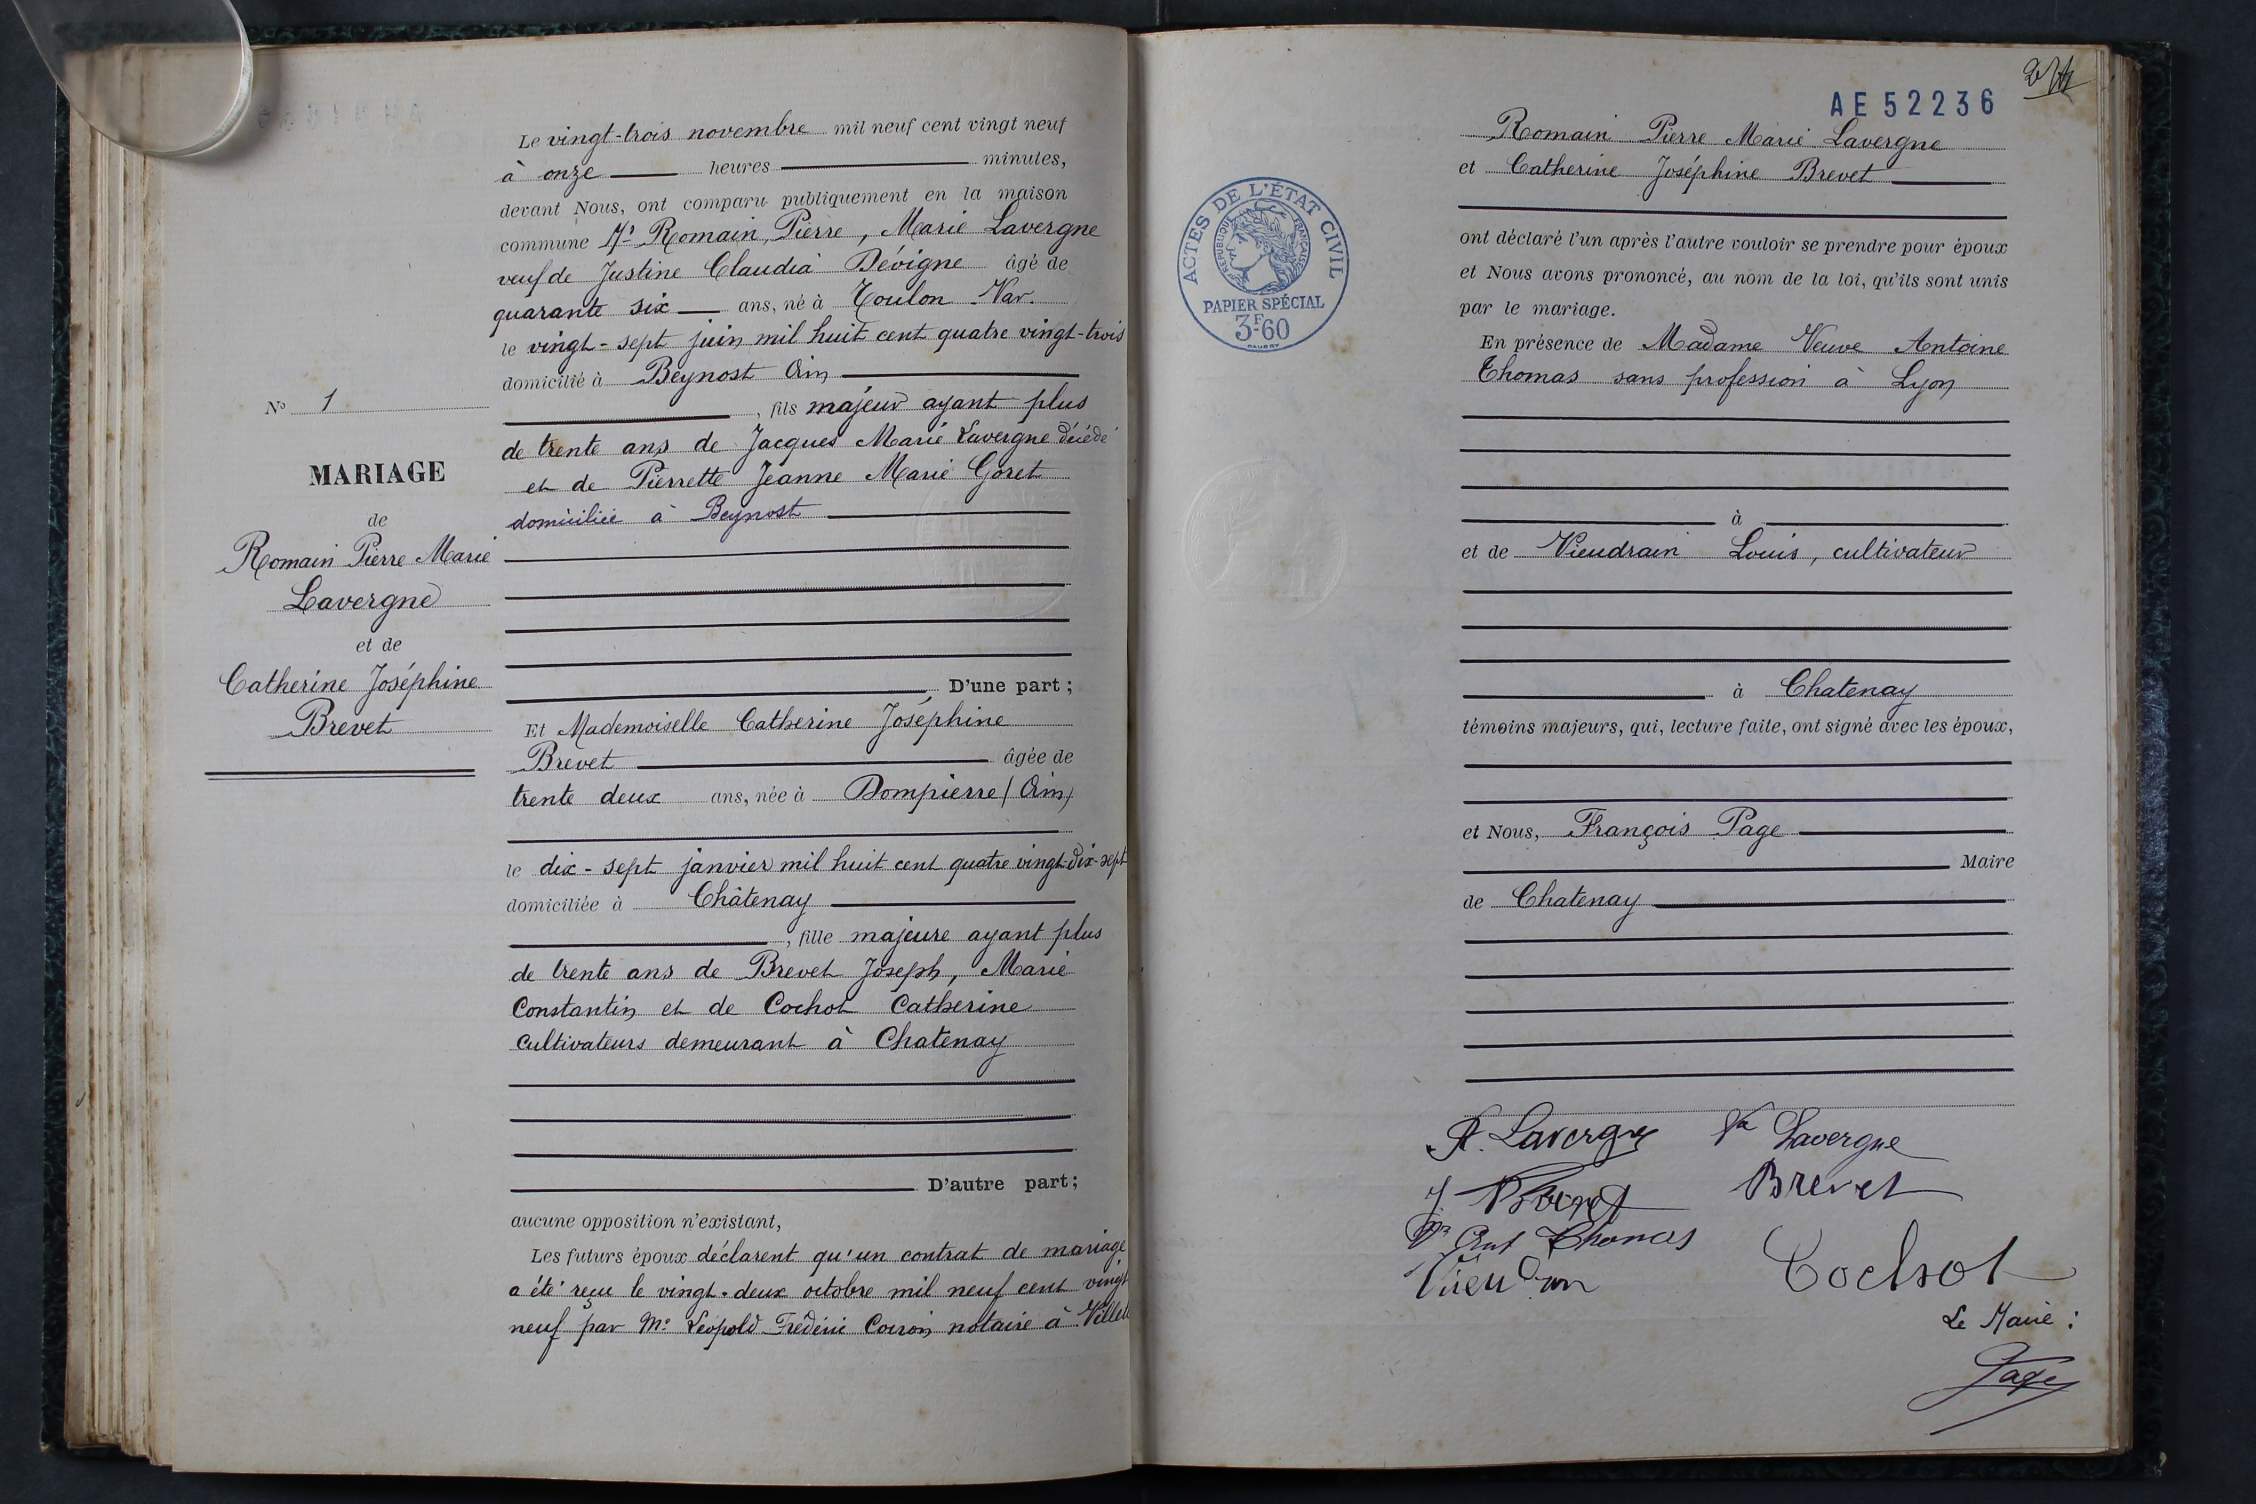 Le vingt-trois novembre mil neuf cent vingt neuf
à onze heures minutes,
devant Nous, ont comparu publiquement en la maison
commune Mr Romain, Pierre, Marie Lavergne
veuf de Justine Claudia Dévigne âgé de
quarante six ans, né à Toulon Var.
le vingt-sept juin mil huit cent quatre vingt-trois
domicilié à Beynost Ain
, fils majeur ayant plus
de trente ans de Jacques Marie Lavergne décédé
et de Pierrette Jeanne Marie Goret
domiciliée à Beynost
D'une part ;
Et Mademoiselle Catherine Joséphine
Brevet âgée de
trente deux ans, née à Dompierre (Ain)
le dix-sept janvier mil huit cent quatre vingt-dix-sept
domiciliée à Châtenay
, fille majeure ayant plus
de trente ans de Brevet Joseph, Marie
Constantin et de Cochot Catherine
cultivateurs demeurant à Chatenay
D'autre part ;
aucune opposition n'existant,
Les futurs époux déclarent qu'un contrat de mariage
a été reçu le vingt-deux octobre mil neuf cent vingt
neuf par Me Léopold Frédéric notaire à
No 1
MARIAGE
de
Romain Pierre Marie
Lavergne
et de
Catherine Joséphine
Brevet
AE 52236
ACTES DE L'ÉTAT CIVIL
RÉPUBLIQUE FRANÇAISE
PAPIER SPÉCIAL
3F60
Romain Pierre Marie Lavergne
et Catherine Joséphine Brevet
ont déclaré l'un après l'autre vouloir se prendre pour époux
et Nous avons prononcé, au nom de la loi, qu'ils sont unis
par le mariage.
En présence de Madame Veuve Antoine
Thomas sans profession à Lyon
à
et de Vieudrain Louis, cultivateur
à Chatenay
témoins majeurs, qui, lecture faite, ont signé avec les époux,
et Nous, François Page
Maire
de Chatenay
R. Lavergne Vve Lavergne
J. Brevet Brevet
Vve Ant Thomas
Cochot
Le Maire :
Page